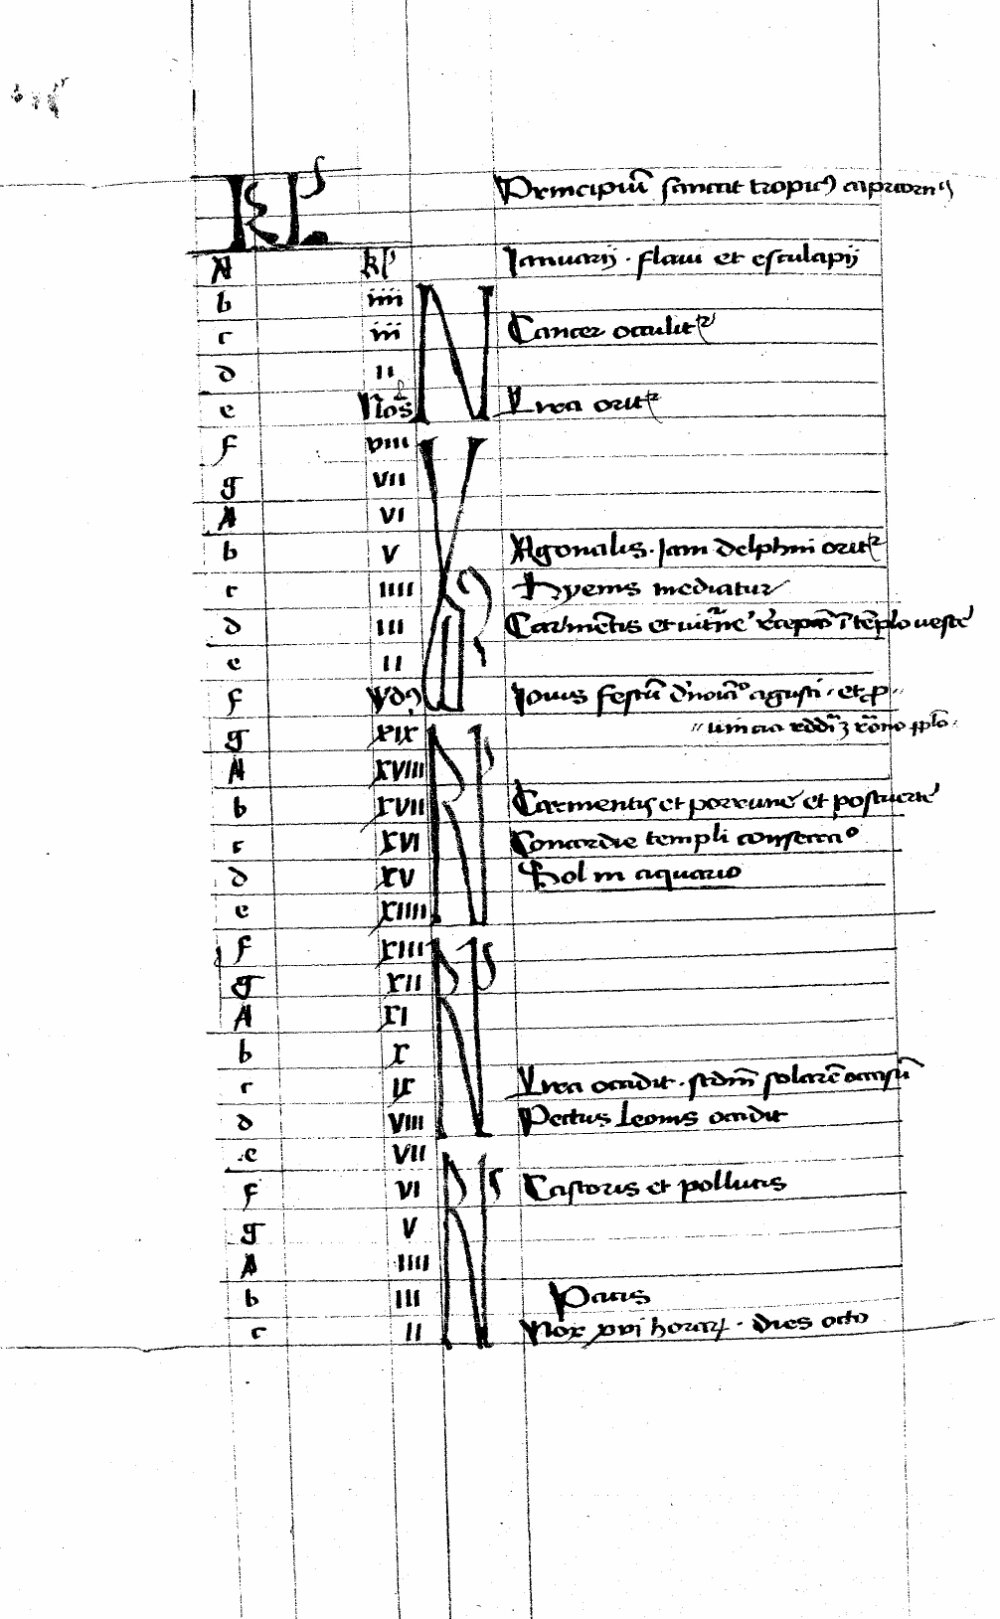 KL Principiũ sanccit tropic⁹ capricorn⁹
A kl' Januarij · flaui et esculapij
b iiii
c iii Cancer occulit᷑
d ii
e Noˢ Lyra orit᷑
f viii
g vii
A vi
b v Agonalis · Jam delphin orit᷑
c iiii Hyems mediatur
d iii Carmẽtis et ĩ tẽplo veste
e ii
f ydꝰ Jouis festũ agusti · et ꝓ〃
g xix 〃uincia
A xviii
b xvii Carmentis et porrime et postuerte
c xvi Concordie templi consecraᵒ
d xv Sol in aquario
e xiiii
f xiii
g xii
A xi
b x
c ix Lyra occidit · scdm̃ solarẽ occasũ
d viii Pectus leonis occidit
e vii
f vi Castoris et pollucis
g v
A iiii
b iii Pacis
c ii Nox xvi horaꝝ · dies octo